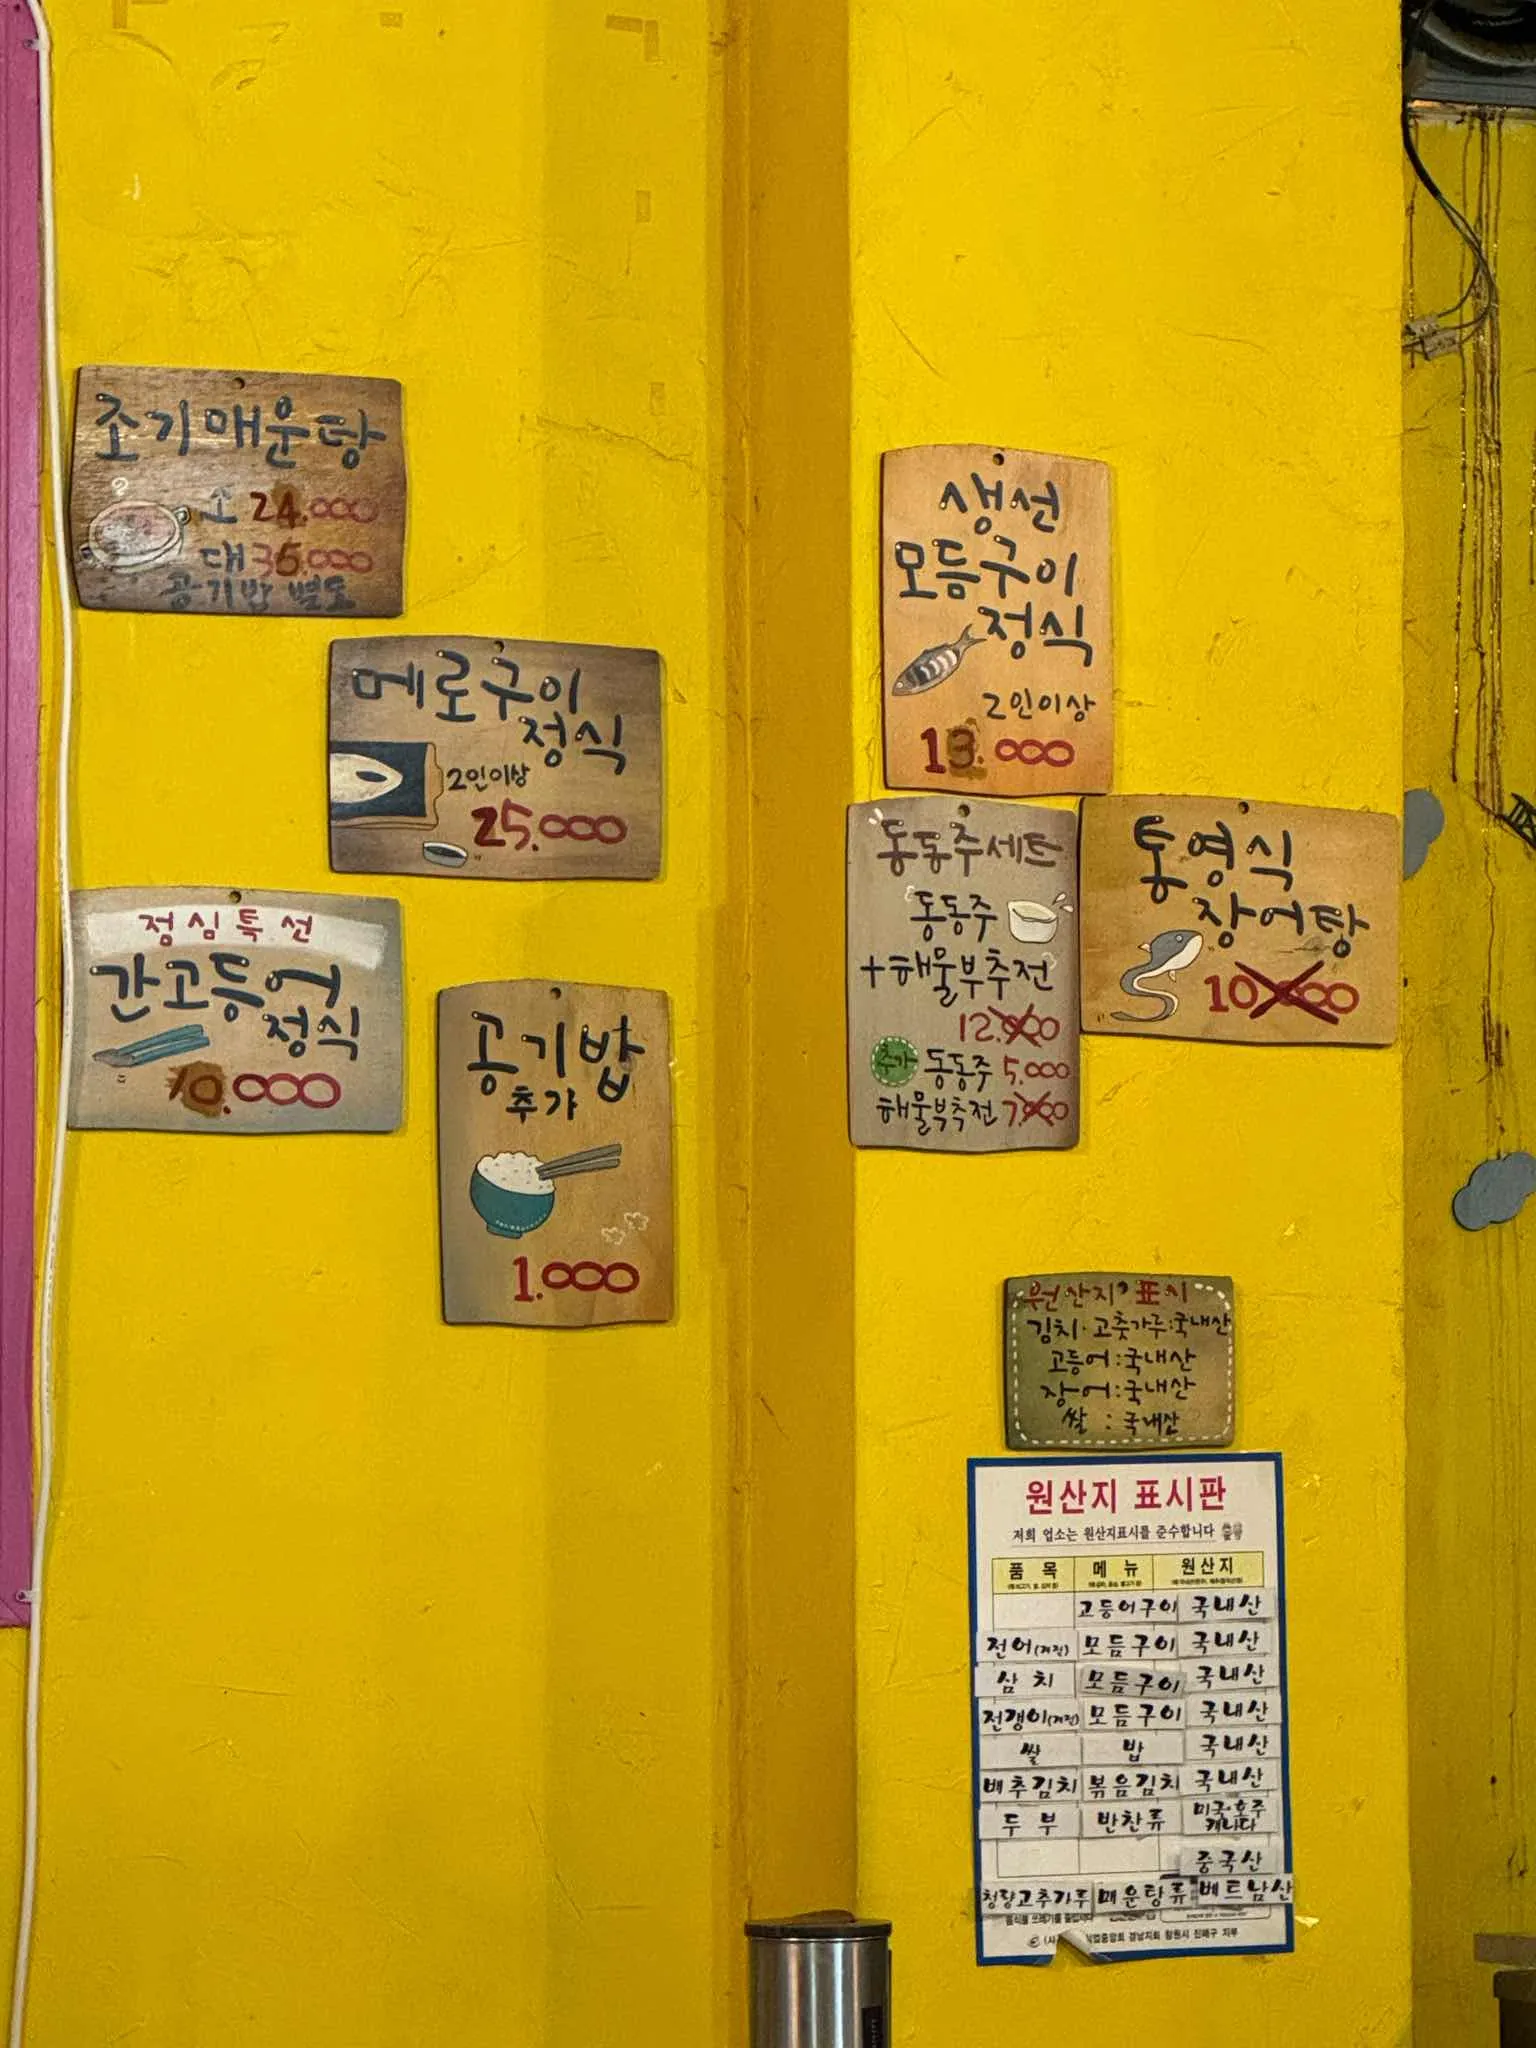 조기매운탕
소 24.000
대 36.000
공기밥 별도
메로구이
정식
2인이상
25.000
점심특선
간고등어
정식
10.000
공기밥
추가
1.000
생선
모듬구이
정식
2인이상
13.000
동동주세트
동동주
+해물부추전
12.000
추가 동동주 5.000
해물부추전 7.000
통영식
장어탕
10.000
원산지 표시
김치·고춧가루:국내산
고등어:국내산
장어:국내산
쌀:국내산
원산지 표시판
저희 업소는 원산지표시를 준수합니다
품목 메뉴 원산지
고등어구이 국내산
전어 모듬구이 국내산
삼치 모듬구이 국내산
전갱이 모듬구이 국내산
쌀 밥 국내산
배추김치 볶음김치 국내산
두부 반찬류 미국·호주
캐나다
중국산
청량고추가루 매운탕류 베트남산
경남지회 창원시 진해구 지부